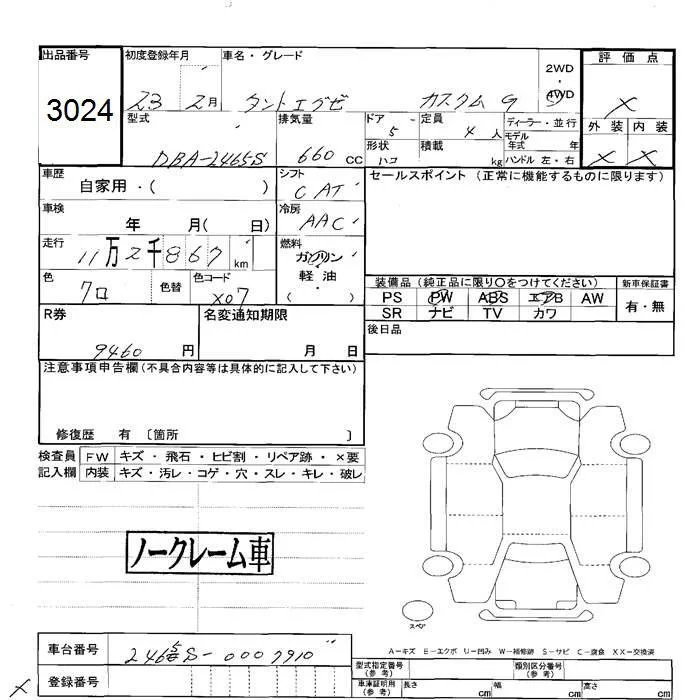 出品番号 初度登録年月 車名・グレード 2WD・4WD 評価点
3024 23 2月 タントエグゼ カスタム G X
型式 排気量 ドア 定員 ディーラー・並行 外装 内装
DBA-L465S 660 CC 5 4人 モデル年式 年 X X
形状 積載 ハンドル 左・右
ハコ kg
車歴 シフト セールスポイント (正常に機能するものに限ります)
自家用・( ) CAT
車検 冷房
年 月( 日) AAC
走行 燃料
11万2千867km ガソリン
軽油
・
( )
色 色替 色コード 装備品 (純正品に限り○をつけてください) 新車保証書
クロ X07 PS PW ABS エアB AW 有・無
SR ナビ TV カワ
R券 名変通知期限 後日品
9460円 月 日
注意事項申告欄(不具合内容等は具体的に記入して下さい)
修復歴 有 〔箇所 〕
検査員 FW キズ・飛石・ヒビ割・リペア跡・×要
記入欄 内装 キズ・汚レ・コゲ・穴・スレ・キレ・破レ
ノークレーム車
スペア
A-キズ E-エクボ U-凹み W-補修跡 S-サビ C-腐食 XX-交換済
車台番号 L465S-0007910
登録番号
型式指定番号(参考) 類別区分番号(参考)
車庫証明用(参考) 長さ cm 幅 cm 高さ cm
X